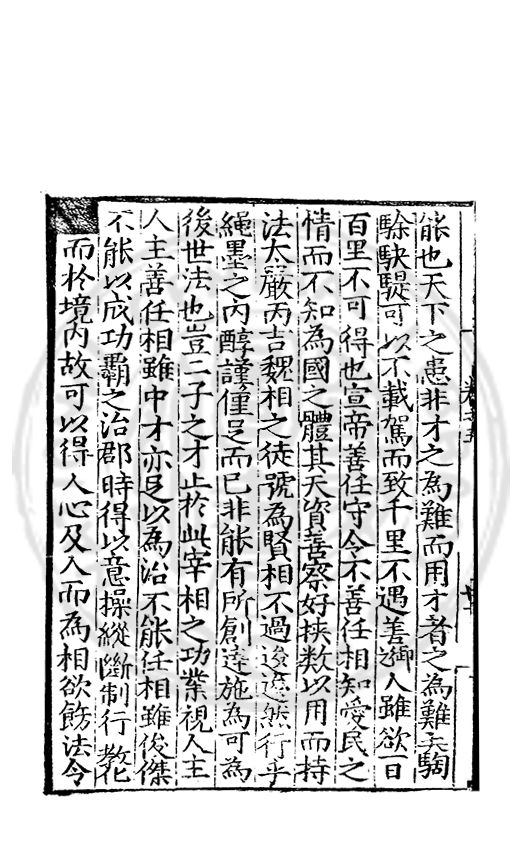 能也天下之患非才之為難而用才者之為難夫騊
駼駃騠可以不載駕而致千里不遇善御人雖欲一日
百里不可得也宣帝善任守令不善任相知愛民之
情而不知為國之體其天資善察好挾数以用而持
法太嚴丙吉魏相之徒號為賢相不過逡逡然行乎
繩墨之內醇謹僅足而已非能有所創建施為可為
後世法也豈二子之才止於此宰相之功業視人主
人主善任相雖中才亦足以為治不能任相雖俊傑
不能以成功霸之治郡時得以意操縱斷制行教化
而於境內故可以得人心及入而為相欲飭法令